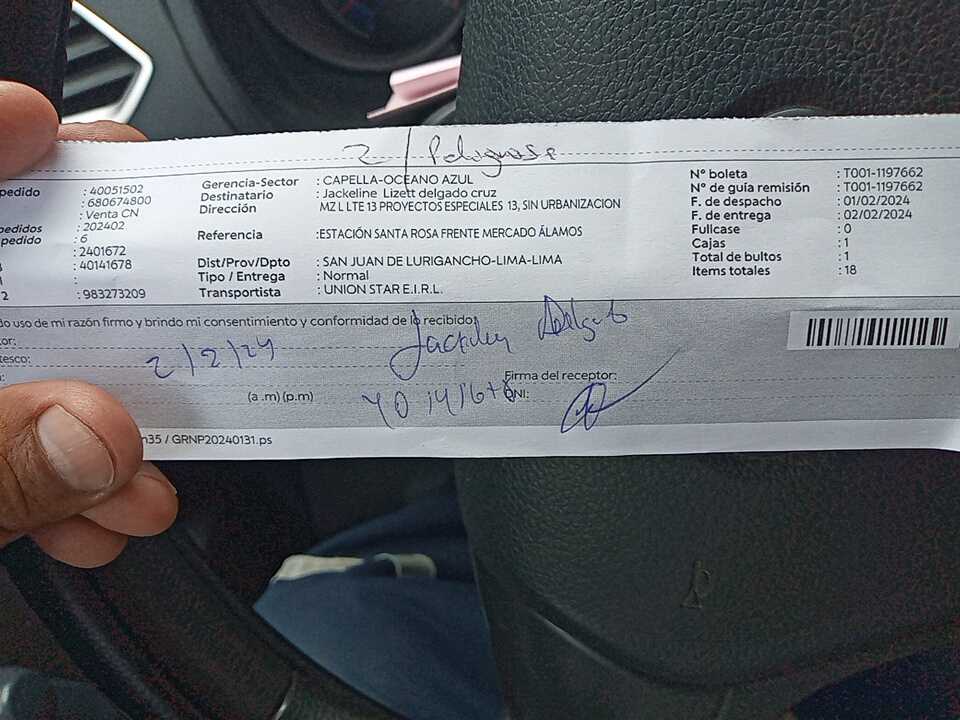 2 / Peligrosa
pedido : 40051502 Gerencia-Sector : CAPELLA-OCEANO AZUL N° boleta : T001-1197662
: 680674800 Destinatario : Jackeline Lizett delgado cruz N° de guía remisión : T001-1197662
: Venta CN Dirección MZ L LTE 13 PROYECTOS ESPECIALES 13, SIN URBANIZACION F. de despacho : 01/02/2024
pedidos : 202402 F. de entrega : 02/02/2024
pedido : 6 Referencia :ESTACIÓN SANTA ROSA FRENTE MERCADO ÁLAMOS Fullcase : 0
: 2401672 Cajas : 1
: 40141678 Dist/Prov/Dpto : SAN JUAN DE LURIGANCHO-LIMA-LIMA Total de bultos : 1
: Tipo / Entrega : Normal Items totales : 18
2 : 983273209 Transportista : UNION STAR E.I.R.L.
do uso de mi razón firmo y brindo mi consentimiento y conformidad de lo recibido
tor:
tesco: 2/2/24 Delgado
(a .m) (p.m) 40141678 Firma del receptor:
DNI:
n35 / GRNP20240131.ps